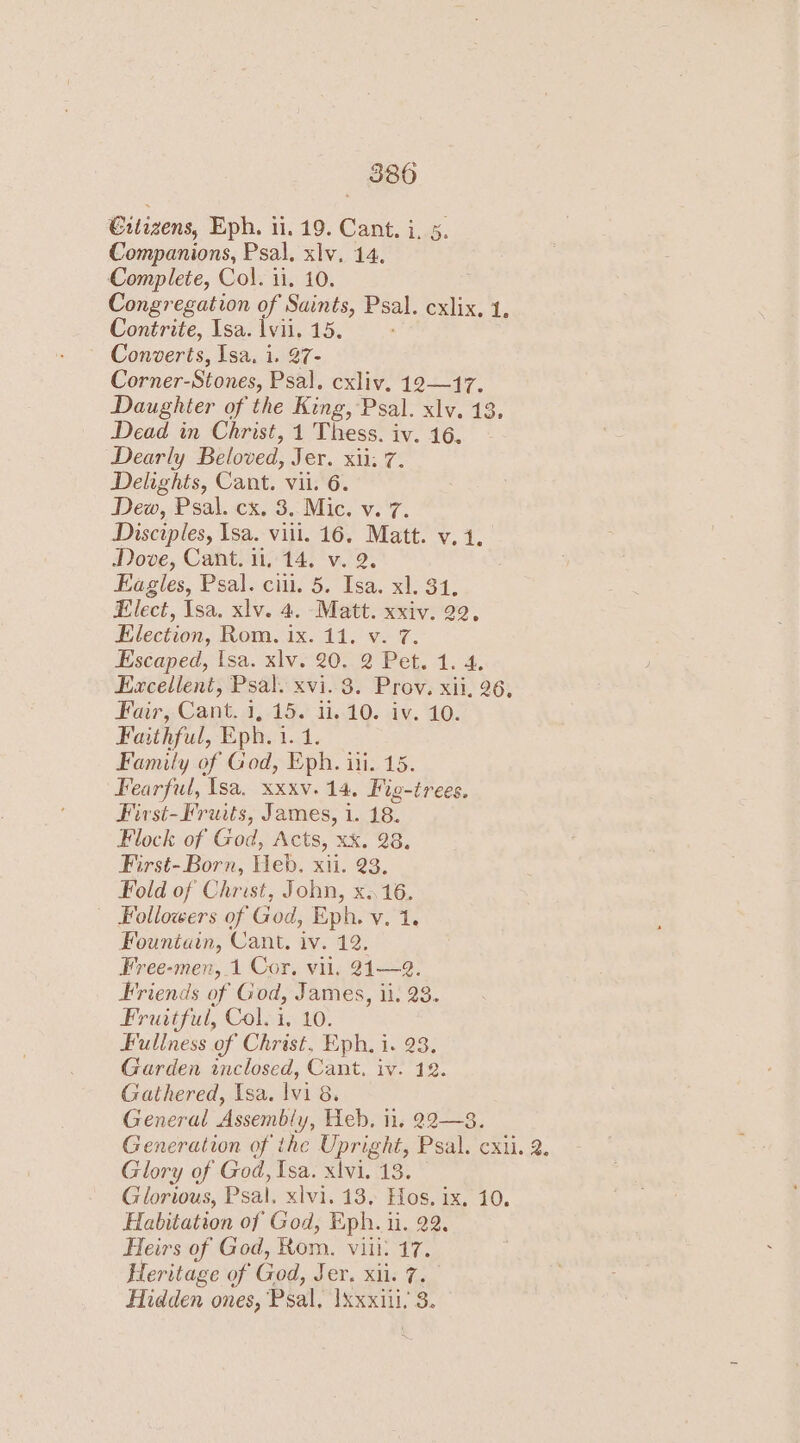 386
Citizens, Eph. ii. 19. Cant. i. 5.
Companions, Psal. xlv. 14.
Complete, Col. ii. 10.
Congregation of Saints, Psal. cxlix. 1.
Contrite, Isa. lvii. 15.
Converts, Isa. i. 27-
Corner-Stones, Psal. cxliv. 12—17.
Daughter of the King, Psal. xlv. 13.
Dead in Christ, 1 Thess. iv. 16.
Dearly Beloved, Jer. xii. 7.
Delights, Cant. vii. 6.
Dew, Psal. cx. 3. Mic. v. 7.
Disciples, Isa. viii. 16. Matt. v. 1.
Dove, Cant. ii. 14. v. 2.
Eagles, Psal. ciii. 5. Isa. xl. 31.
Elect, Isa. xlv. 4. Matt. xxiv. 22.
Election, Rom. ix. 11. v. 7.
Escaped, Isa. xlv. 20. 2 Pet. 1. 4.
Excellent, Psal. xvi. 3. Prov. xii. 26.
Fair, Cant. i, 15. ii. 10. iv. 10.
Faithful, Eph. i. 1.
Family of God, Eph. iii. 15.
Fearful, Isa. xxxv. 14. Fig-trees.
First-Fruits, James, i. 18.
Flock of God, Acts, xx. 28.
First-Born, Heb. xii. 23.
Fold of Christ, John, x. 16.
Followers of God, Eph. v. 1.
Fountain, Cant. iv. 12.
Free-men, 1 Cor. vii. 21—2.
Friends of God, James, ii. 23.
Fruitful, Col. i. 10.
Fullness of Christ, Eph. i. 23.
Garden inclosed, Cant. iv. 12.
Gathered, Isa. lvi 8.
General Assembly, Heb. ii. 22—3.
Generation of the Upright, Psal. cxii. 2.
Glory of God, Isa. xlvi. 13.
Glorious, Psal. xlvi. 13. Hos. ix. 10.
Habitation of God, Eph. ii. 22.
Heirs of God, Rom. viii. 17.
Heritage of God, Jer. xii. 7.
Hidden ones, Psal. lxxxiii. 3.